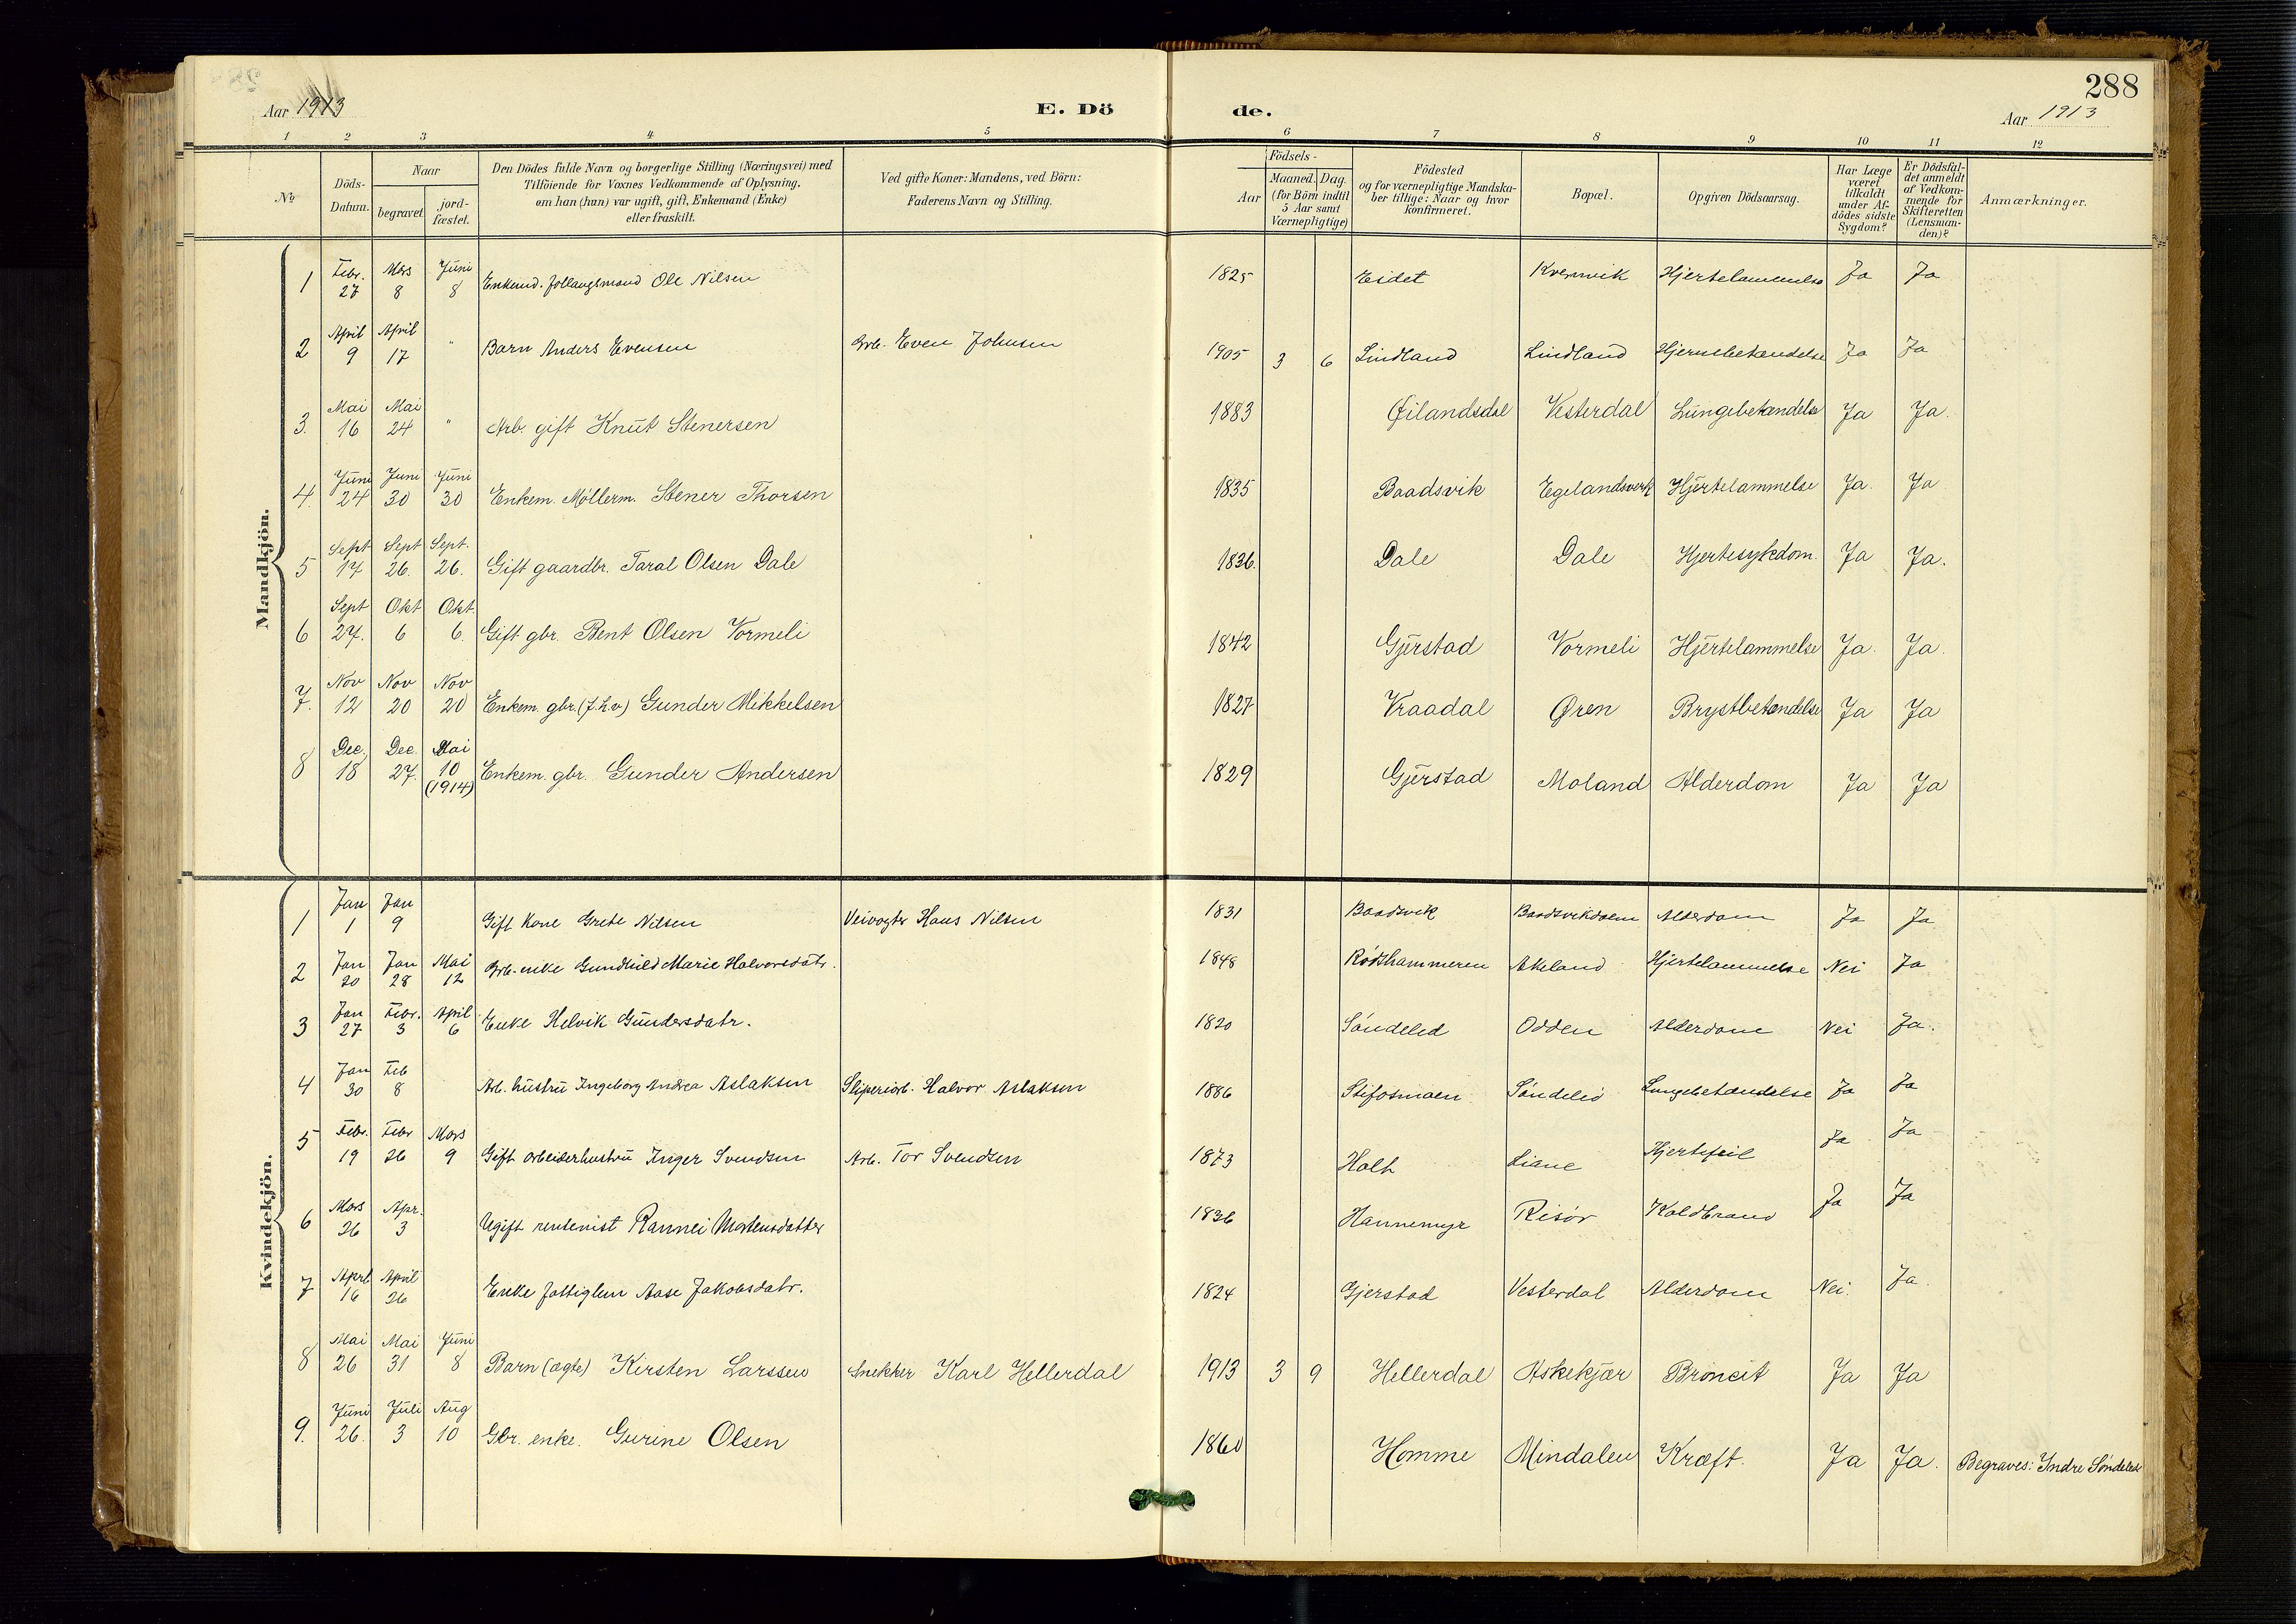 288
Aar 1913 E. Dö de. Aar 1913
1 2 3 4 5 6 7 8 9 10 11 12
No
Döds-Datum.
Naar
begravet
jord-fæstet.
Den Dödes fulde Navn og borgerlige Stilling (Næringsvei) med
Tilföiende for Voxnes Vedkommende af Oplysning,
om han (hun) var ugift, gift, Enkemand (Enke)
eller fraskilt.
Ved gifte Koner: Mandens, ved Börn:
Faderens Navn og Stilling.
Födsels-
Aar
Maaned. Dag.
(for Börn indtil
5 Aar samt
Værnepligtige)
Födested
og for værnepligtige Mandska-
ber tillige: Naar og hvor
konfirmeret.
Bopæl.
Opgiven Dödsaarsag.
Har Læge
været
tilkaldt
under Af-
dödes sidste
Sygdom?
Er Dödsfal-
det anmeldt
af Vedkom-
mende for
Skifteretten
(Lensman-
den)?
Anmærkninger.
Mandkjön.
1 Febr. 27 Mars 8 Juni 8 Enkemd. Ole Nilsen 1825 Eidet Kvernvik Hjertelammelse Ja Ja
2 April 9 April 17 " Barn Anders Evensen Grb. Even Johnsen 1905 3 6 Lindland Lindland Hjernebetændelse Ja Ja
3. Mai 16 Mai 24 " Arb. gift Knut Stenersen 1883 Øilandsdal Vesterdal Lungebetændelse Ja Ja.
4. Juni 24 Juni 30 Juni 30 Enkem. Møllerm. Stener Thorsen 1835 Baadsvik Egelandsverk Hjertelammelse Ja. Ja
5 Sept 17 Sept 26. Sept. 26. Gift gaardbr. Taral Olsen Dale 1836. Dale Dale Hjertesykdom. Ja Ja.
6 Sept 27. Okt 6 Okt. 6. Gift gbr. Bent Olsen Vormeli 1842 Gjerstad Vormeli Hjertelammelse Ja. Ja.
7. Nov 12 Nov 20 Nov 20 Enkem. gbr. (f.k.v) Gunder Mikkelsen 1827 Vraadal Øren Brystbetændelse Ja Ja
8 Dec. 18 Dec. 27. Mai 10 (1914) Enkem. gbr. Gunder Andersen 1829 Gjerstad Moland Alderdom Ja Ja
Kvindekjön.
1 Jan 1 Jan 9 Gift Kone Grete Nilsen Veivogter Hans Nilsen 1831 Baadsvik Baadsvikdalen Alderdom Ja Ja
2 Jan 20 Jan 28 Mai 12 Grb. enke Gunhild Marie Halvorsdatr. 1848 Rødshammeren Akeland Hjertelammelse Nei Ja
3 Jan 27 Febr. 3 April 6 Enke Helvik Gundersdatr. 1820 Søndeled Odden Alderdom Nei Ja.
4 Jan 30 Feb 8 Arb. hustru Ingeborg Andrea Aslaksen Sliperiarb. Halvor Aslaksen 1886 Stifosmoen Søndeled Lungebetændelse Ja Ja
5 Febr. 19 Febr 26 Mars 9 Gift arbeiderhustru Inger Svendsen Arb. Tor Svendsen 1873 Holt Liane Hjertefeil Ja Ja
6 Mars 26 Apr. 3 Ugift rentenist Rannei Mortensdatter 1836 Hannemyr Risør Koldbrand Ja Ja
7 April 16 April 26 Enke fattiglem Aase Jakobsdatr. 1824 Gjerstad Vesterdal Alderdom Nei. Ja.
8 Mai 26 Mai 31 Juni 8 Barn (ægte) Kirsten Larssen Snekker Karl Hellerdal 1913 3 9 Hellerdal Askekjær Broncit Ja Ja
9. Juni 26. Juli 3 Aug 10 Gbr. enke. Gurine Olsen 1860 Homme Mindalen Kræft. Ja Ja. Begraves: Indre Søndeled